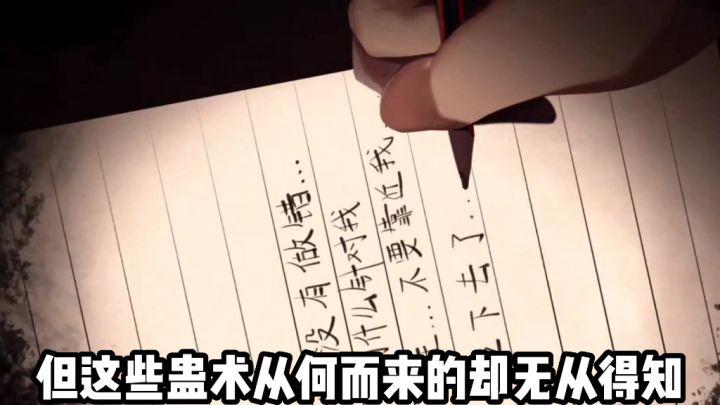 没有做错...
什么针对我
...不要靠近我
下去了...
但这些蛊术从何而来的却无从得知